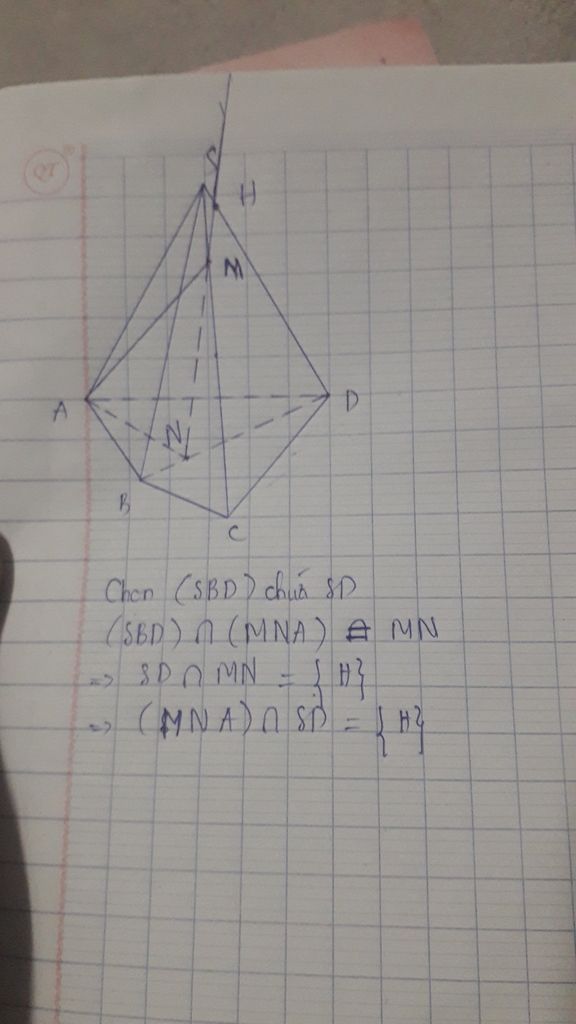 QT
S
H
M
A
D
N
B
C
Chọn (SBD) chứa SD
(SBD) ∩ (MNA) = MN
=> SD ∩ MN = {H}
=> (MNA) ∩ SD = {H}